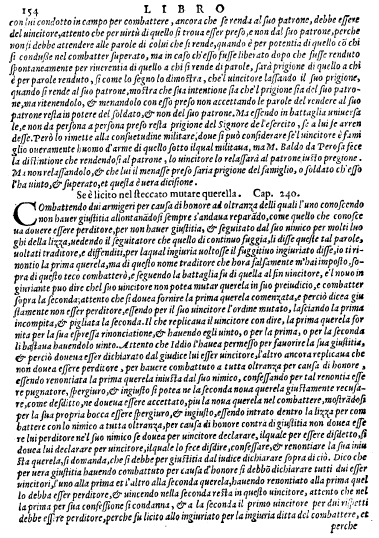 154 LIBRO
con lui condotto in campo per combattere, ancora che se renda al suo patrone, debbe essere
del uincitore, attento che per uirtù di quello si troua esser preso, e non dal suo patrone, perche
non si debbe attendere alle parole di colui che si rende, quando è per potentia di quello cō chi
si condusse nel combatter superato, ma in caso ch'esso fusse liberato dopo che fusse renduto
spontaneamente per riuerentia di quello a chi si rende di parole, sarà prigione di quello a chi
è per parole renduto, si come lo segno lo dimostra, che'l uincitore lassando il suo prigione,
quando si rende al suo patrone, mostra che sua intentione sia che'l prigione sia del suo patro-
ne, ma ritenendolo, & menandolo con esso preso non accettando le parole del rendere al suo
patrone resta in potere del soldato, & non del suo patrone. Ma essendo in battaglia uniuersa
le, e non da persona a persona preso resta prigione del Signore de l'esercito, se a lui se arren
desse. Però lo rimetto alla consuetudine militare, doue si può considerare se'l uincitore è fami
glio oueramente huomo d'arme di quello sotto il qual militaua, ma M. Baldo da Perosa fece
la distintione che rendendosi al patrone, lo uincitore lo relassarà al patrone iusto pregione.
Ma non relassandolo, & che lui il menasse preso saria prigione del famiglio, o soldato ch'esso
l'ha uinto, & superato, et questa è uera dicisione.
Se è licito nel steccato mutare querella. Cap. 240.
Combattendo dui armigeri per causa di honore ad oltranza delli quali l'uno conoscendo
non hauer giustitia allontanādosi sempre s'andaua reparādo, come quello che conosce
ua douere essere perditore, per non hauer giustitia, & seguitato dal suo nimico per molti luo
ghi della lizza, uedendo il seguitatore che quello di continuo fuggia, li disse queste tal parole,
uoltati traditore, e diffenditi, per laqual ingiuria uoltose il fuggitiuo ingiuriato disse, io ti ri-
montio la prima querela, ma di questo nome traditore che hora falsamente m'hai imposto, so-
pra di questo teco combatterò, e seguendo la battaglia fu di quella al fin uincitore, è'l nouo in
giuriante puo dire che'l suo uincitore non poteua mutar querela in suo preiudicio, e combatter
sopra la seconda; attento che si douea fornire la prima querela comenzata, e perciò dicea giu
stamente non esser perditore, essendo per il suo uincitore l'ordine mutato, lasciando la prima
incompita, & pigliata la seconda. Il che replicaua il uincitore con dire, la prima querela for
nita per la sua espressa rinonciatione, & hauendo egli uinto, o per la prima, o per la seconda
li bastaua hauendolo uinto. Attento che Iddio l'hauea permesso per fauorire la sua giustitia,
& perciò douea esser dichiarato dal giudice lui esser uincitore, l'altro ancora replicaua che
non douea essere perditore, per hauer combattuto a tutta oltranza per causa di honore,
essendo renontiata la prima querela iniusta dal suo nimico, confessando per tal renontia esse
re pugnatore, spergiuro, & ingiusto si potea ne la seconda noua querela giustamente recusa-
re, come desdisito, ne doueua essere accettato, piu la noua querela nel combattere, mostrādosi
per la sua propria bocca essere spergiuro, & ingiusto, essendo intrato dentro la lizza per com
battere con lo nimico a tutta oltranza, per causa di honore contra di questo non douea esse
re lui perditore nel'l suo nimico se douea per uincitore declarare, ilquale per essere disdetto, si
douea lui declarare per uincitore, ilquale lo fece disdire, confessare, & renontiare la sua iniu
sta querela, si domanda, che si debbe per giustitia dal iudice dichiarare sopra di ciò. Dico che
per uera giustitia hauendo combattuto per causa d'honore si debbō dichiarare tutti dui esser
uincitori, l'uno alla prima et l'altro alla seconda querela, hauendo renontiato alla prima quel
lo debba esser perditore, & uincendo nella seconda resta in questo uincitore, attento che nel
la prima per sua confessione si condanna, & a la seconda il primo uincitore per dui rispetti
debbe essere perditore, perche su licito allo ingiuriato per la ingiuria ditta del combattere, et
perche